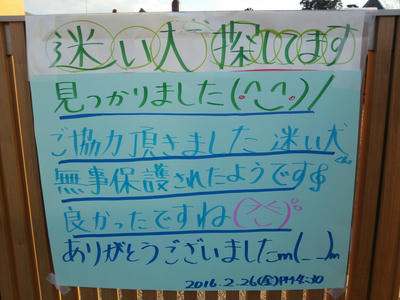 迷い犬ご探してます
見つかりました(^◡^)/
ご協力頂きました 迷い犬くん
無事保護されたようです♪
良かったですね(^◡^)
ありがとうございましたm(_ _)m
2016.2.26(金)PM4:30